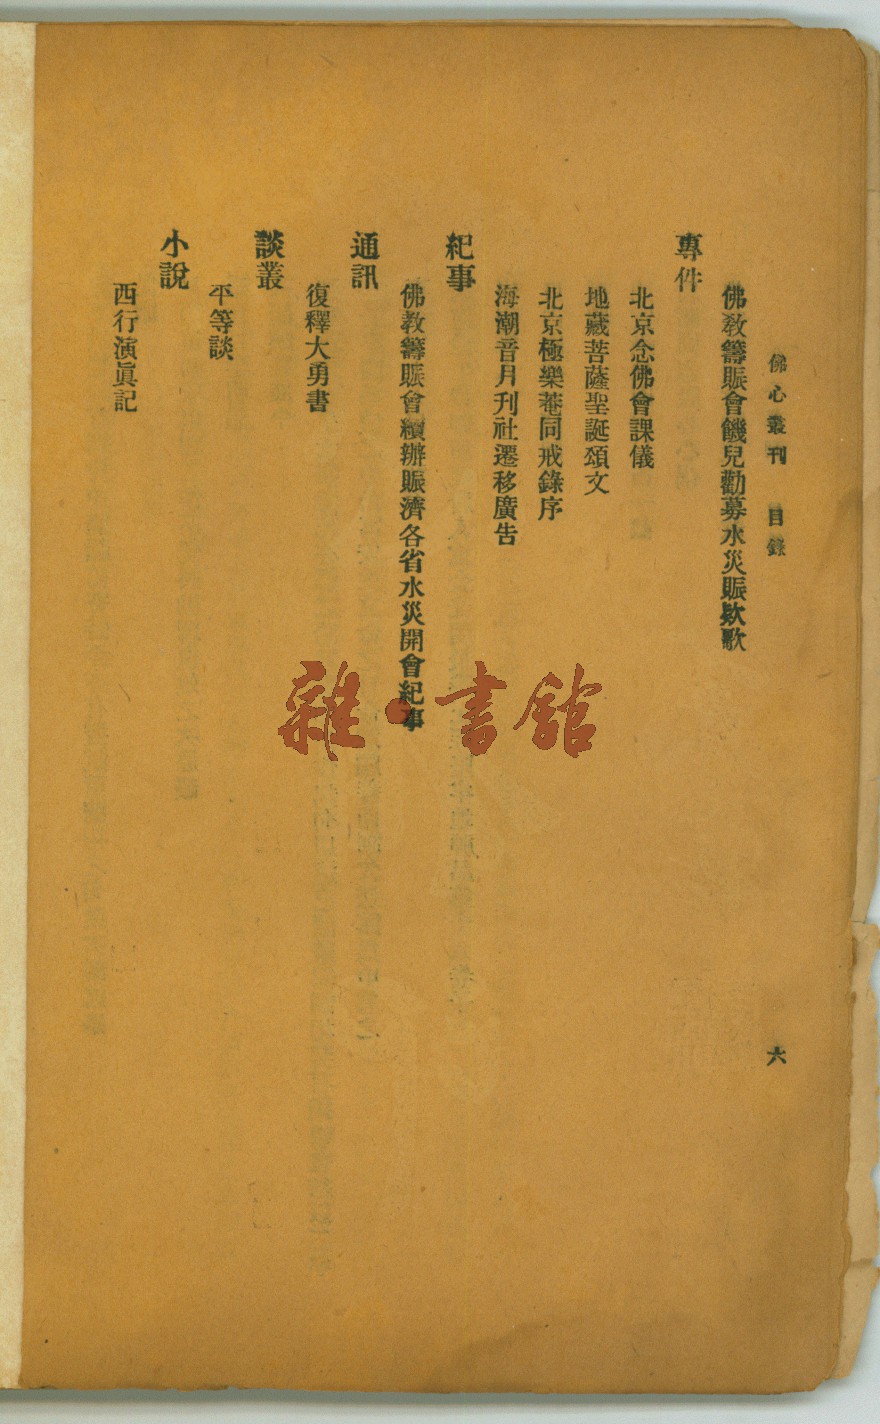 佛心叢刊 目錄
六
佛教籌賑會饑兒勸募水災賑欵歌
專件
北京念佛會課儀
地藏菩薩聖誕頌文
北京極樂菴同戒錄序
海潮音月刊社遷移廣告
紀事
佛教籌賑會續辦賑濟各省水災開會紀事
通訊
復釋大勇書
談叢
平等談
小說
西行演眞記
雜·書館